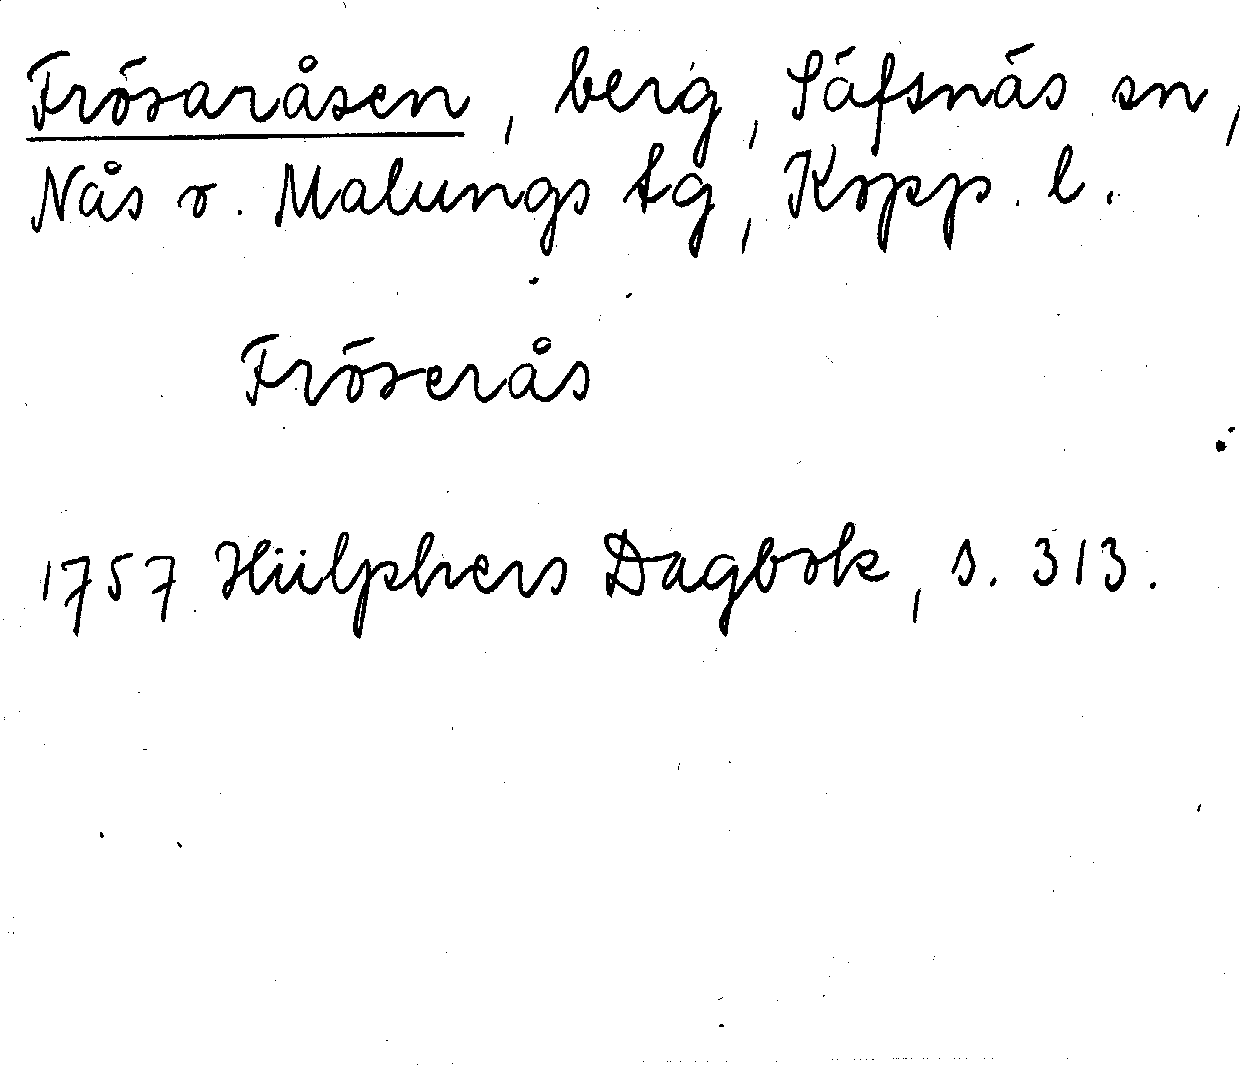 Frösaråsen, berg, Säfsnäs sn,
Nås o. Malungs tg, Kopp. l.
Fröserås
1757 Hülphers Dagbok, s. 313.